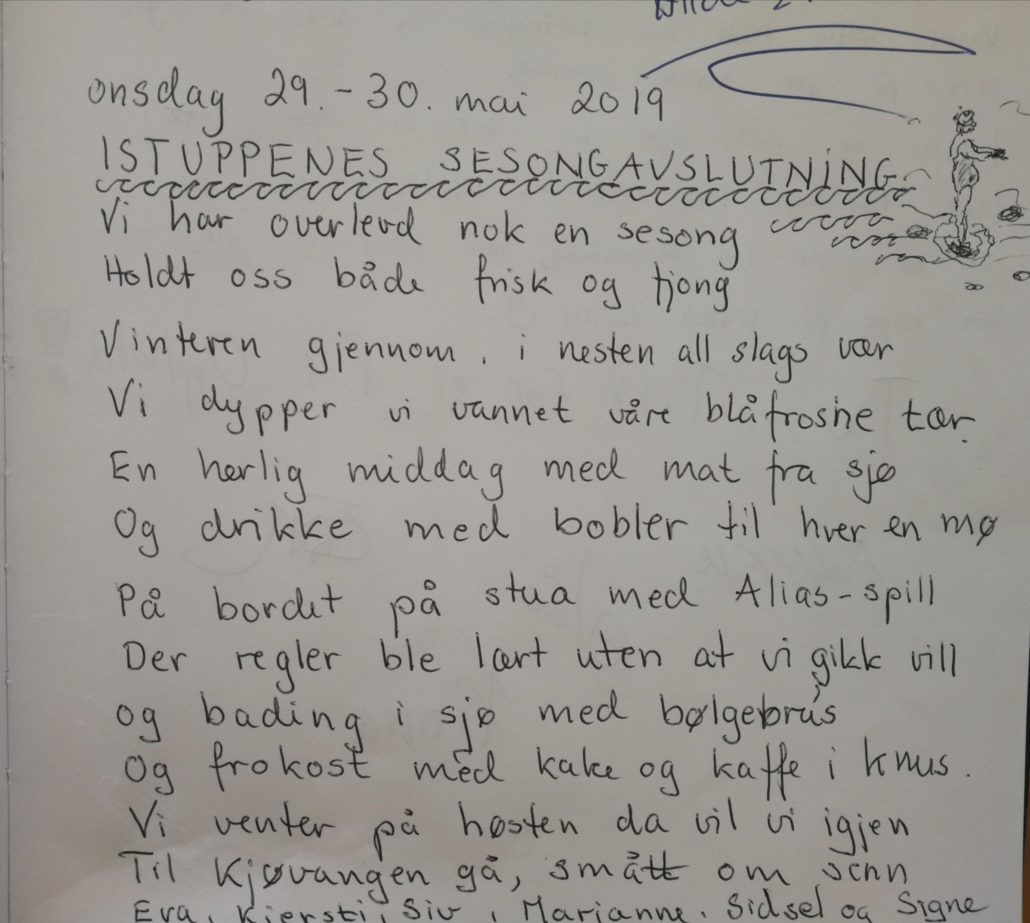 onsdag 29.-30. mai 2019
ISTUPPENES SESONGAVSLUTNING
Vi har overlevd nok en sesong
Holdt oss både frisk og tjong
Vinteren gjennom, i nesten all slags vær
Vi dypper vi vannet våre blåfrosne tær.
En herlig middag med mat fra sjø
Og drikke med bobler til hver en mø
På bordet på stua med Alias-spill
Der regler ble lært uten at vi gikk vill
og bading i sjø med bølgebrus
Og frokost med kake og kaffe i knus.
Vi venter på høsten da vil vi igjen
Til Kjøvangen gå, smått om senn
Eva, Kjersti, Siv, Marianne, Sidsel og Signe